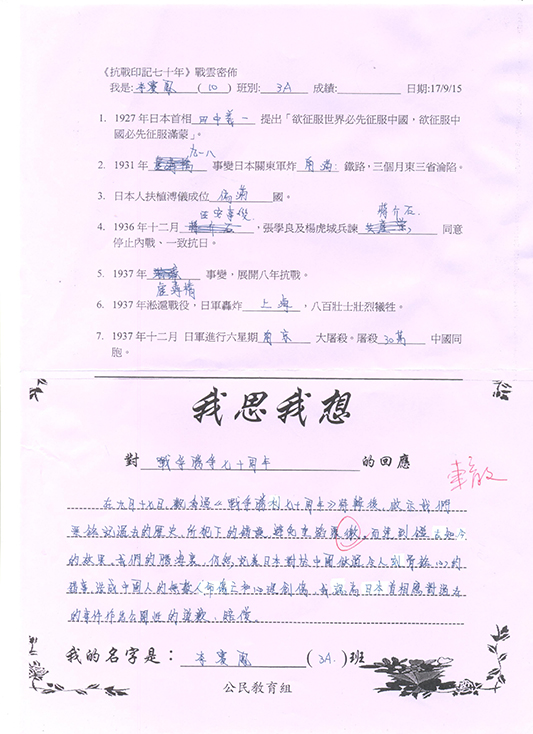 《抗戰印記七十年》戰雲密佈
我是: 李寶鳳 (10) 班別: 3A 成績: 日期:17/9/15
1. 1927年日本首相 田中義一 提出「欲征服世界必先征服中國，欲征服中
國必先征服滿蒙」。
九一八
2. 1931年 事變日本關東軍炸 南滿 鐵路，三個月東三省淪陷。
3. 日本人扶植溥儀成位 偽滿 國。
西安事變 蔣介石
4. 1936年十二月 ，張學良及楊虎城兵諫 同意
停止內戰、一致抗日。
5. 1937年 事變，展開八年抗戰。
盧溝橋
6. 1937年淞滬戰役，日軍轟炸 上海 ，八百壯士壯烈犧牲。
7. 1937年十二月 日軍進行六星期 南京 大屠殺。屠殺 30萬 中國同
胞。
我思我想
對 戰爭勝爭七十周年 的回應
在九月十七日，觀看過《戰爭勝利七十周年》將輯後，啟示我們
要銘記過去的歷史、所犯下的錯誤，避免重蹈覆徹，而達到
的效果。我們的勝
的錯事，造成中國人的無數人命傷亡和心理創傷。我認為日本首相應對過去
的事件作出公開性的道歉、賠償。
我的名字是： 李寶鳳 (3A)班
公民教育組